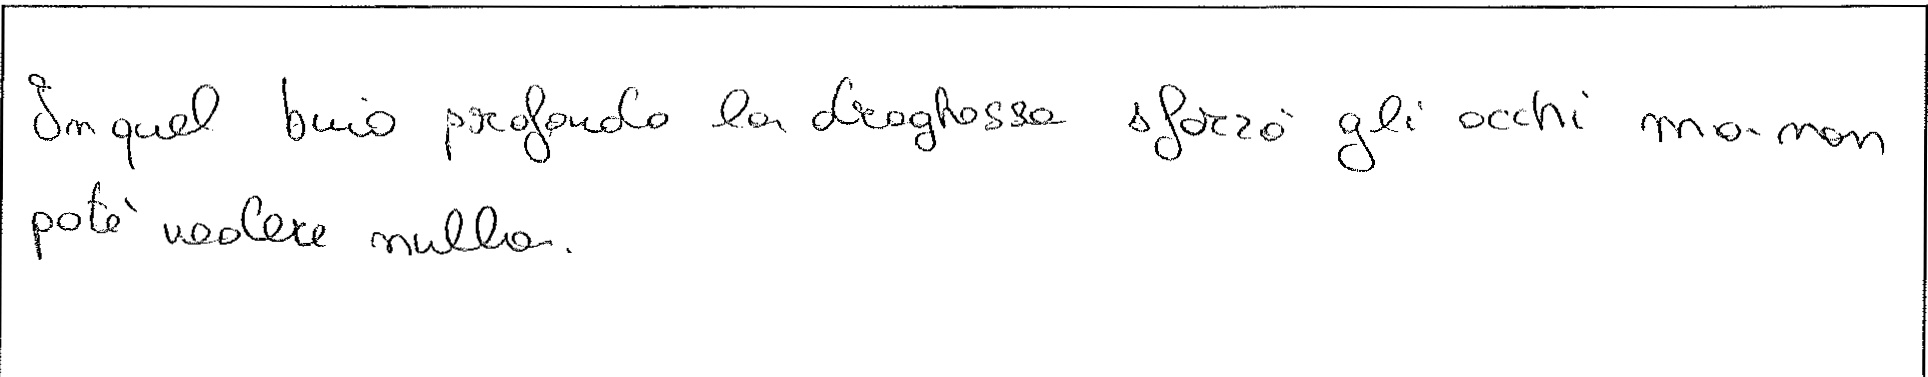 In quel buio profondo la draghossa sforzò gli occhi ma non
poté vedere nulla.